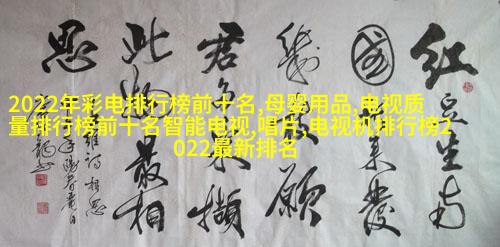 2022年彩电排行榜前十名,母婴用品,电视质
量排行榜前十名智能电视,唱片,电视机排行榜2
022最新排名
红豆生南
國来發
幾願
君多采擷
此物最相
思